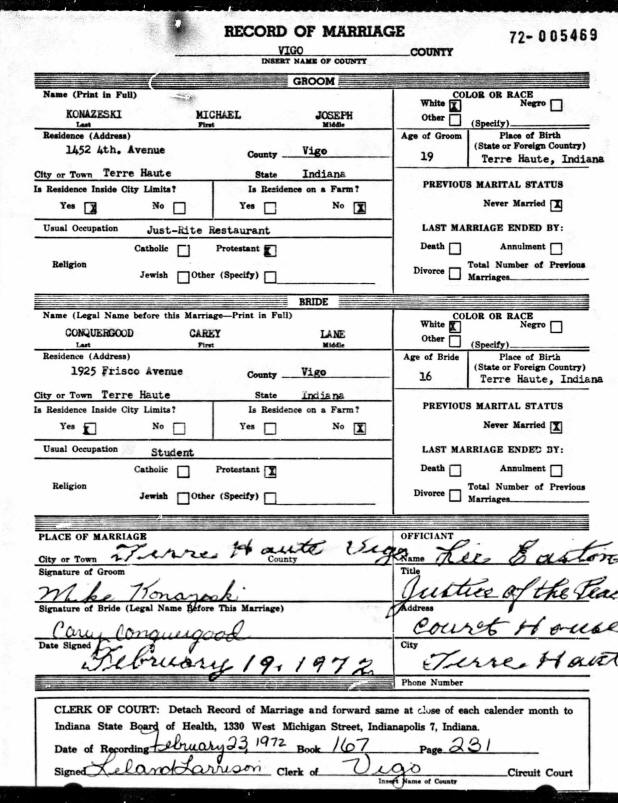 RECORD OF MARRIAGE
72-005469
VIGO COUNTY
INSERT NAME OF COUNTY
GROOM
Name (Print in Full)
KONAZESKI MICHAEL JOSEPH
Last First Middle
COLOR OR RACE
White X Negro
Other (Specify)
Residence (Address)
1452 4th. Avenue County Vigo
City or Town Terre Haute State Indiana
Age of Groom
19
Place of Birth
(State or Foreign Country)
Terre Haute, Indiana
Is Residence Inside City Limits? Is Residence on a Farm?
Yes X No Yes No X
PREVIOUS MARITAL STATUS
Never Married X
Usual Occupation Just-Rite Restaurant
Religion
Catholic Protestant X
Jewish Other (Specify)
LAST MARRIAGE ENDED BY:
Death Annulment
Divorce Total Number of Previous
Marriages
BRIDE
Name (Legal Name before this Marriage—Print in Full)
CONQUERGOOD CAREY LANE
Last First Middle
COLOR OR RACE
White X Negro
Other (Specify)
Residence (Address)
1925 Frisco Avenue County Vigo
City or Town Terre Haute State Indiana
Age of Bride
16
Place of Birth
(State or Foreign Country)
Terre Haute, Indiana
Is Residence Inside City Limits? Is Residence on a Farm?
Yes X No Yes No X
PREVIOUS MARITAL STATUS
Never Married X
Usual Occupation Student
Religion
Catholic Protestant X
Jewish Other (Specify)
LAST MARRIAGE ENDED BY:
Death Annulment
Divorce Total Number of Previous
Marriages
PLACE OF MARRIAGE
City or Town Terre Haute County Vigo
Signature of Groom
Mike Konazeski
Signature of Bride (Legal Name Before This Marriage)
Carey Conquergood
Date Signed
February 19, 1972
OFFICIANT
Name Easton
Title
Justice of the Peac
Address
Court House
City
Terre Haut
Phone Number
CLERK OF COURT: Detach Record of Marriage and forward same at close of each calender month to
Indiana State Board of Health, 1330 West Michigan Street, Indianapolis 7, Indiana.
Date of Recording February 23, 1972 Book 167 Page 231
Signed Leland Larrison Clerk of Vigo Circuit Court
Insert Name of County